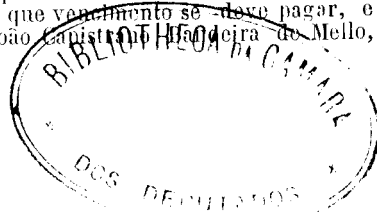 que vencimento se deve pagar, e
João Capistrano Bandeira de Mello,
BIBLIOTHECA DA CAMARA
DOS DEPUTADOS